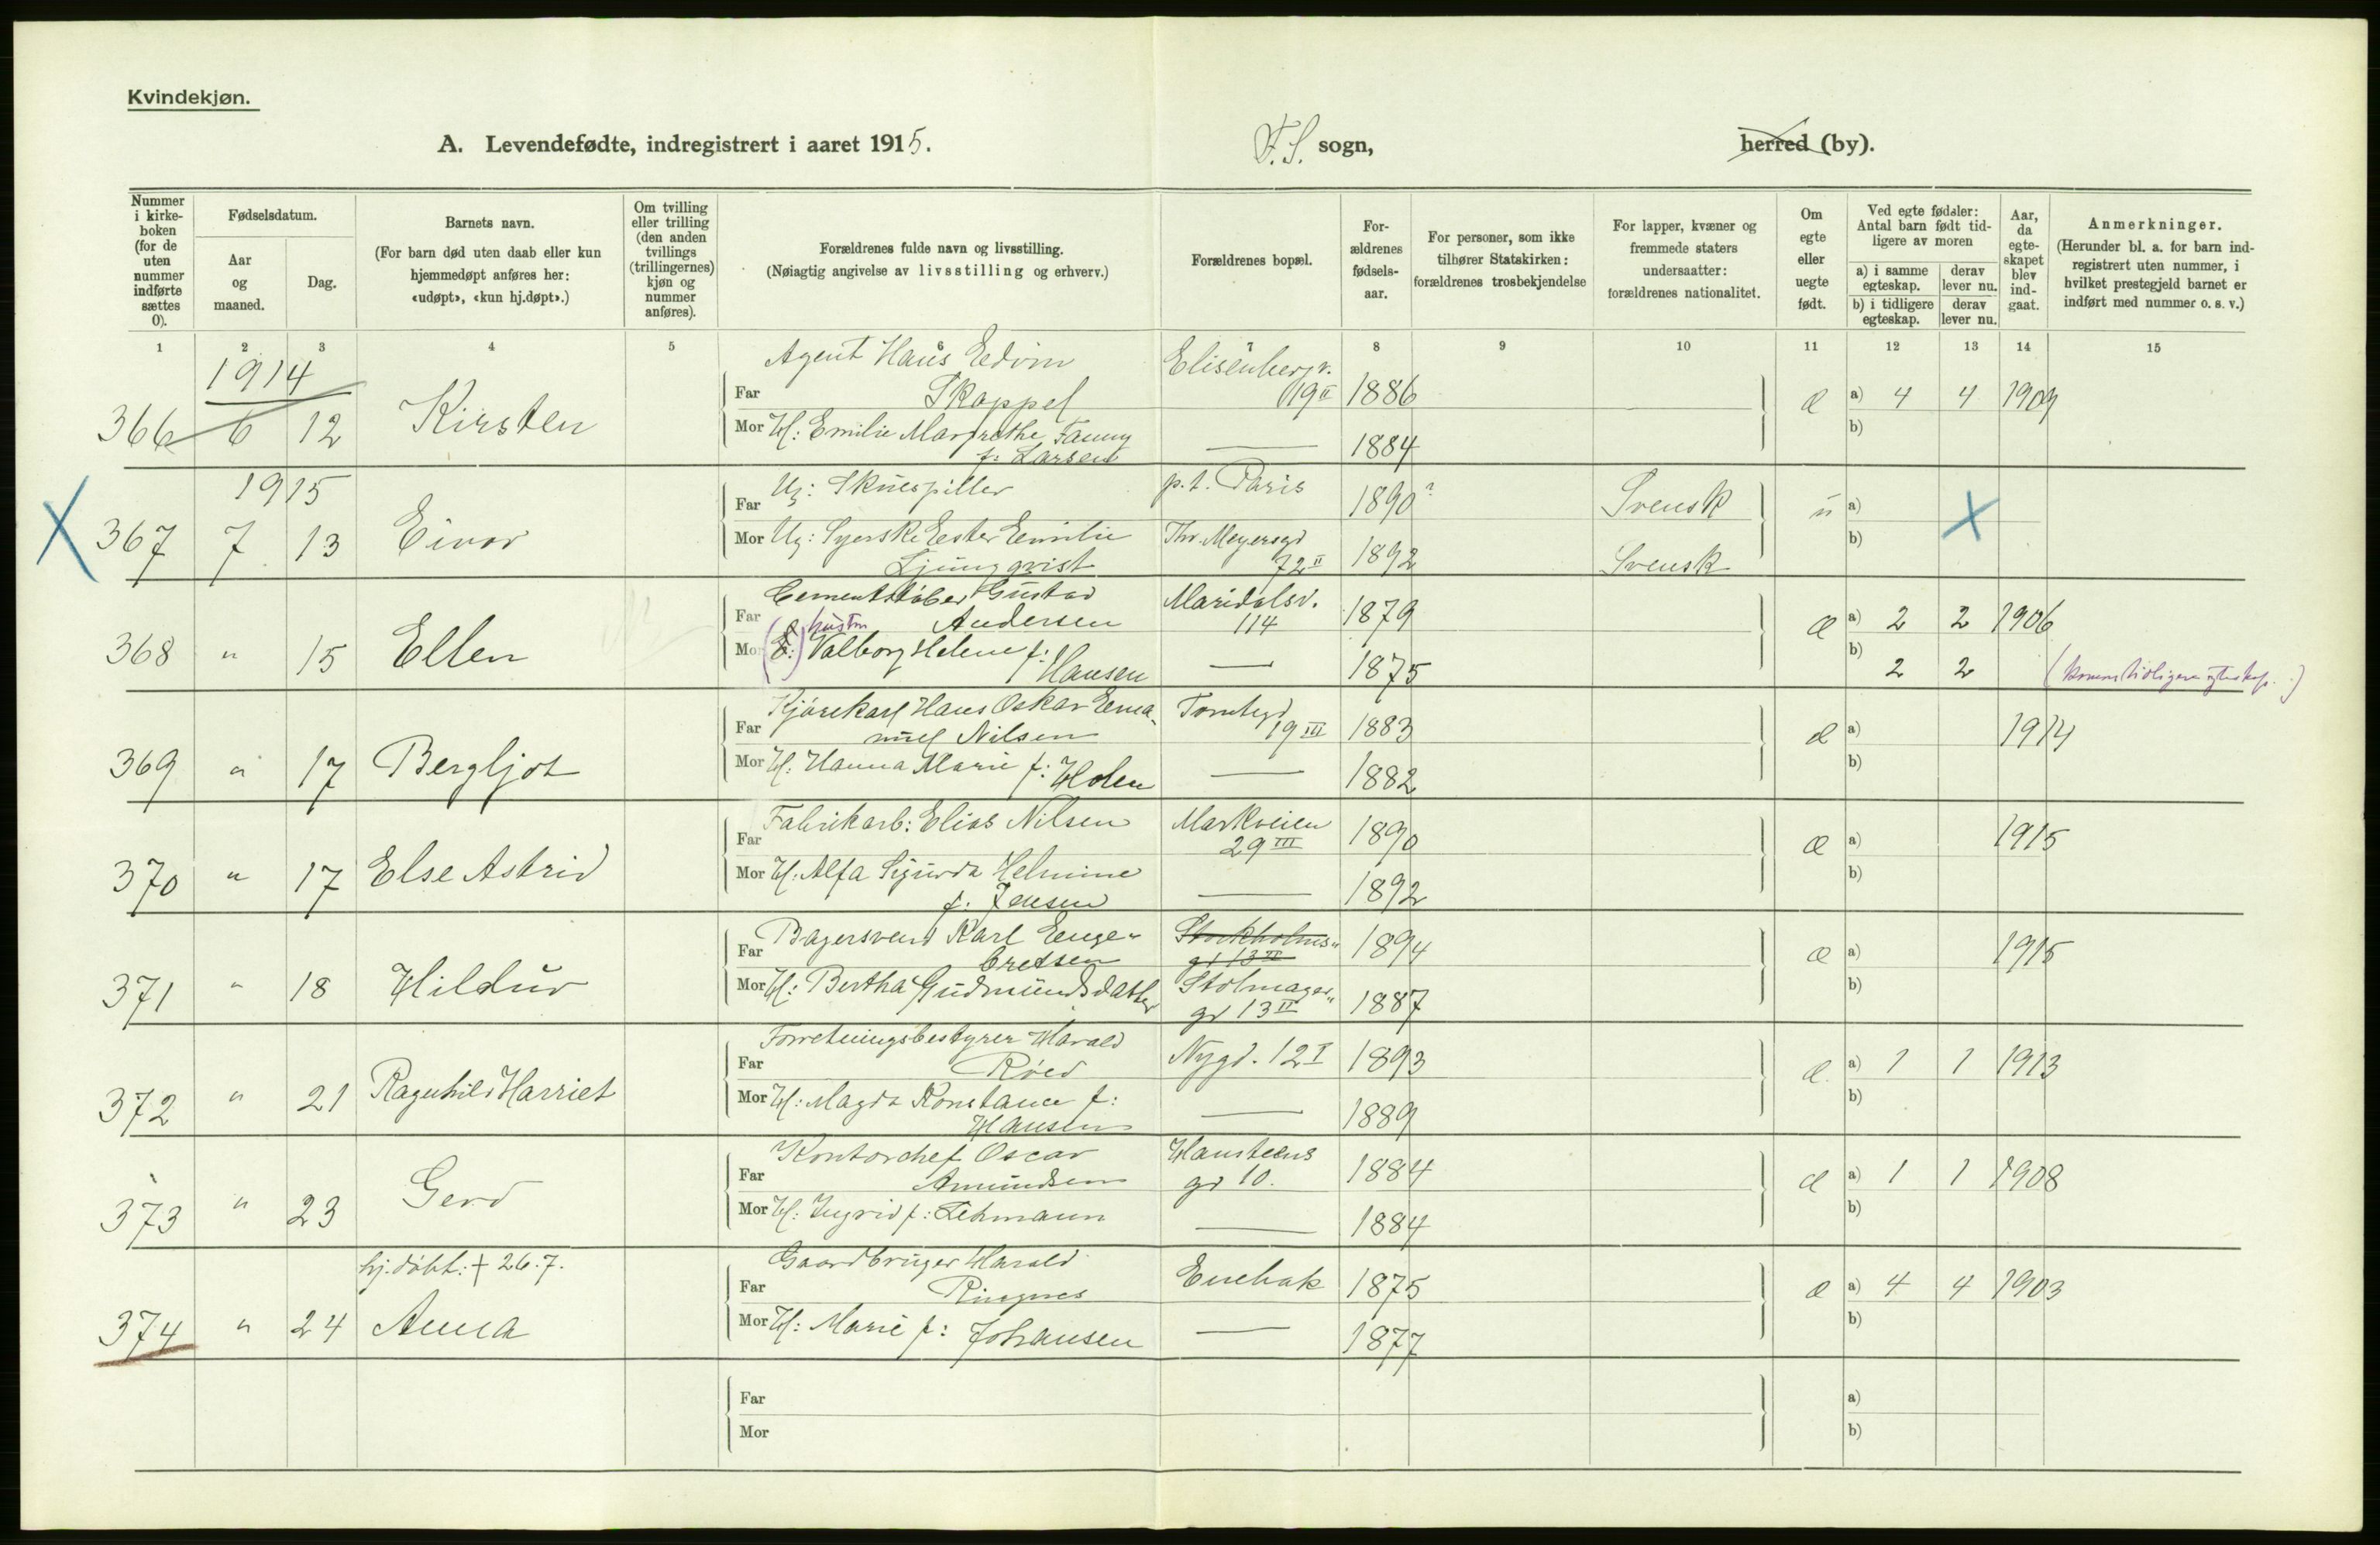 Kvindekjøn.
A. Levendefødte, indregistrert i aaret 1915.
F.S. sogn,
herred (by).
Nummer i kirkeboken (for de uten nummer indførte sættes 0).
Fødselsdatum.
Aar og maaned.
Dag.
Barnets navn.
(For barn død uten daab eller kun hjemmedøpt anføres her: «udøpt», «kun hj.døpt».)
Om tvilling eller trilling (den anden tvillings (trillingernes) kjøn og nummer anføres).
Forældrenes fulde navn og livsstilling.
(Nøiagtig angivelse av livsstilling og erhverv.)
Forældrenes bopæl.
Forældrenes fødselsaar.
For personer, som ikke tilhører Statskirken: forældrenes trosbekjendelse
For lapper, kvæner og fremmede staters undersaatter: forældrenes nationalitet.
Om egte eller uegte født.
Ved egte fødsler: Antal barn født tidligere av moren
a) i samme egteskap.
derav lever nu.
b) i tidligere egteskap.
derav lever nu.
Aar, da egteskapet blev indgaat.
Anmerkninger.
(Herunder bl. a. for barn indregistrert uten nummer, i hvilket prestegjeld barnet er indført med nummer o. s. v.)
1 2 3 4 5 6 7 8 9 10 11 12 13 14 15
1914
Agent Hans Edvin Elisenbergv.
Far Skappel 19 II 1886 æ a) 4 4 1909
366 6 12 Kirsten
Mor H: Emilie Margrethe Fanny — 1884 b)
f: Larsen
1915
Far Ug: Skuespiller p.t. Paris 1890? Svensk u a)
X 367 7 13 Eivor X
Mor Ug: Syerske Ester Emilie Thv. Meyersgd b)
Ljungqvist 72 II 1892 Svensk
Cementstøber Gustav Maridalsv.
Far Andersen 114 1879 æ a) 2 2 1906
hustru
368 " 15 Ellen
Mor E: Valborg Helene f: Hansen — 1875 b) 2 2
Kjørekarl Hans Oskar Ema-
Far nuel Nilsen Tomtegd 19 III 1883 æ a) 1914
369 " 17 Bergljot
Mor H: Hanna Marie f: Holen — 1882 b)
Fabrikarb: Elias Nilsen Markveien
Far 29 III 1890 æ a) 1915
370 " 17 Else Astrid
Mor H: Alfa Sigurda Helmine — 1892 b)
f. Jensen
Bagersvend Karl Enge- Stockholms-
Far bretsen gd 13 II 1894 æ a) 1915
371 " 18 Hildur
Mor H: Bertha Gudmundsdatter Stolmager- b)
gd 13 II 1887
Forretningsbestyrer Harald
Far Röed Nygd. 12 I 1893 æ a) 1 1 1913
372 " 21 Ragnhild Harriet
Mor H: Magda Konstance f: — 1889 b)
Hansen
Kontorchef Oscar Hansteens
Far Amundsen gd 10. 1884 æ a) 1 1 1908
373 " 23 Gerd
Mor H: Ingrid f: Lehmann — 1884 b)
hj.döbt: + 26.7.
Gaardbruger Harald
Far Ringnes Enebak 1875 æ a) 4 4 1903
374 " 24 Anna
Mor H: Marie f: Johansen — 1877 b)
Far a)
Mor b)